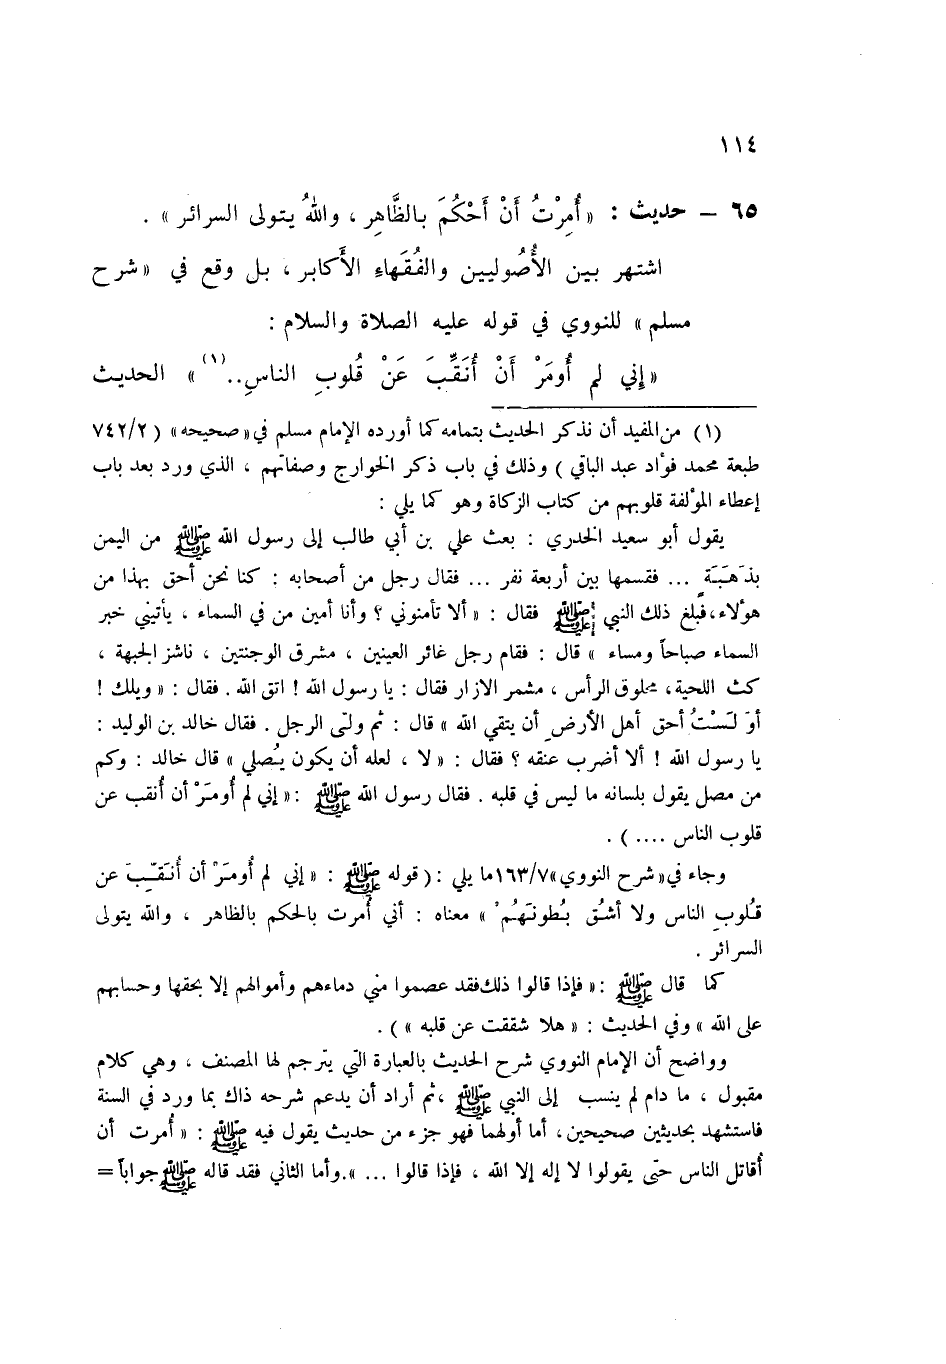 ١١٤
٦٥ – حديث : « أُمِرْتُ أَنْ أَحْكُمَ بالظَّاهِر ، واللهُ يتولى السرائر » .
اشتهر بين الأُصُوليين والفُقَهاءِ الأَكابر ، بل وقع في « شرح
مسلم » للنووي في قوله عليه الصلاة والسلام :
« إني لم أُومَرْ أَنْ أُنَقِّبَ عَنْ قُلوبِ الناسِ..(١) » الحديث
(١) من المفيد أن نذكر الحديث بتمامه كما أورده الإمام مسلم في « صحيحه » ( ٧٤٢/٢
طبعة محمد فؤاد عبد الباقي ) وذلك في باب ذكر الخوارج وصفاتهم ، الذي ورد بعد باب
إعطاء المؤلفة قلوبهم من كتاب الزكاة وهو كما يلي :
يقول أبو سعيد الخدري : بعث علي بن أبي طالب إلى رسول الله ﷺ من اليمن
بذَهَبَة ... فقسمها بين أربعة نفر ... فقال رجل من أصحابه : كنا نحن أحق بهذا من
هؤلاء، فبلغ ذلك النبي ﷺ فقال : « ألا تأمنوني ؟ وأنا أمين من في السماء ، يأتيني خبر
السماء صباحاً ومساء » قال : فقام رجل غائر العينين ، مشرق الوجنتين ، ناشز الجبهة ،
كث اللحية، محلوق الرأس ، مشمر الازار فقال : يا رسول الله ! اتق الله . فقال : « ويلك !
أوَ لَسْتُ أحق أهل الأرض أن يتقي الله » قال : ثم ولّى الرجل . فقال خالد بن الوليد :
يا رسول الله ! ألا أضرب عنقه ؟ فقال : « لا ، لعله أن يكون يُصلي » قال خالد : وكم
من مصل يقول بلسانه ما ليس في قلبه . فقال رسول الله ﷺ :« إني لم أُومَرْ أن أُنقب عن
قلوب الناس .... ) .
وجاء في« شرح النووي»١٦٣/٧ما يلي :( قوله ﷺ : « إني لم أُومَرْ أن أُنَقِّبَ عن
قُلوبِ الناس ولا أشُق بُطونَهُمْ » معناه : أني أُمرت بالحكم بالظاهر ، والله يتولى
السرائر .
كما قال ﷺ :« فإذا قالوا ذلك فقد عصموا مني دماءهم وأموالهم إلا بحقها وحسابهم
على الله » وفي الحديث : « هلا شققت عن قلبه » ) .
وواضح أن الإمام النووي شرح الحديث بالعبارة التي يترجم لها المصنف ، وهي كلام
مقبول ، ما دام لم ينسب إلى النبي ﷺ ،ثم أراد أن يدعم شرحه ذاك بما ورد في السنة
فاستشهد بحديثين صحيحين، أما أولهما فهو جزء من حديث يقول فيه ﷺ : « أُمرت أن
أُقاتل الناس حتى يقولوا لا إله إلا الله ، فإذا قالوا ... ».وأما الثاني فقد قاله ﷺ جواباً =